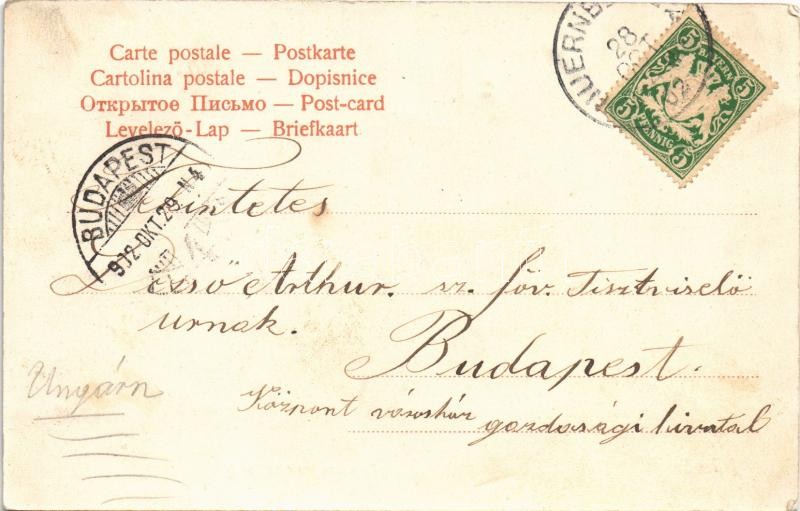 Carte postale — Postkarte
Cartolina postale — Dopisnice
Открытое Письмо — Post-card
Levelező-Lap — Briefkaart
28
02
5 BAYERN 5
5 PFENNIG 5
BUDAPEST
902-OKT.29 N4
Tekintetes
Dezső Arthur. sz. föv. Tisztviselő
urnak.
Budapest.
Ungarn
Központ városház
gazdasági hivatal